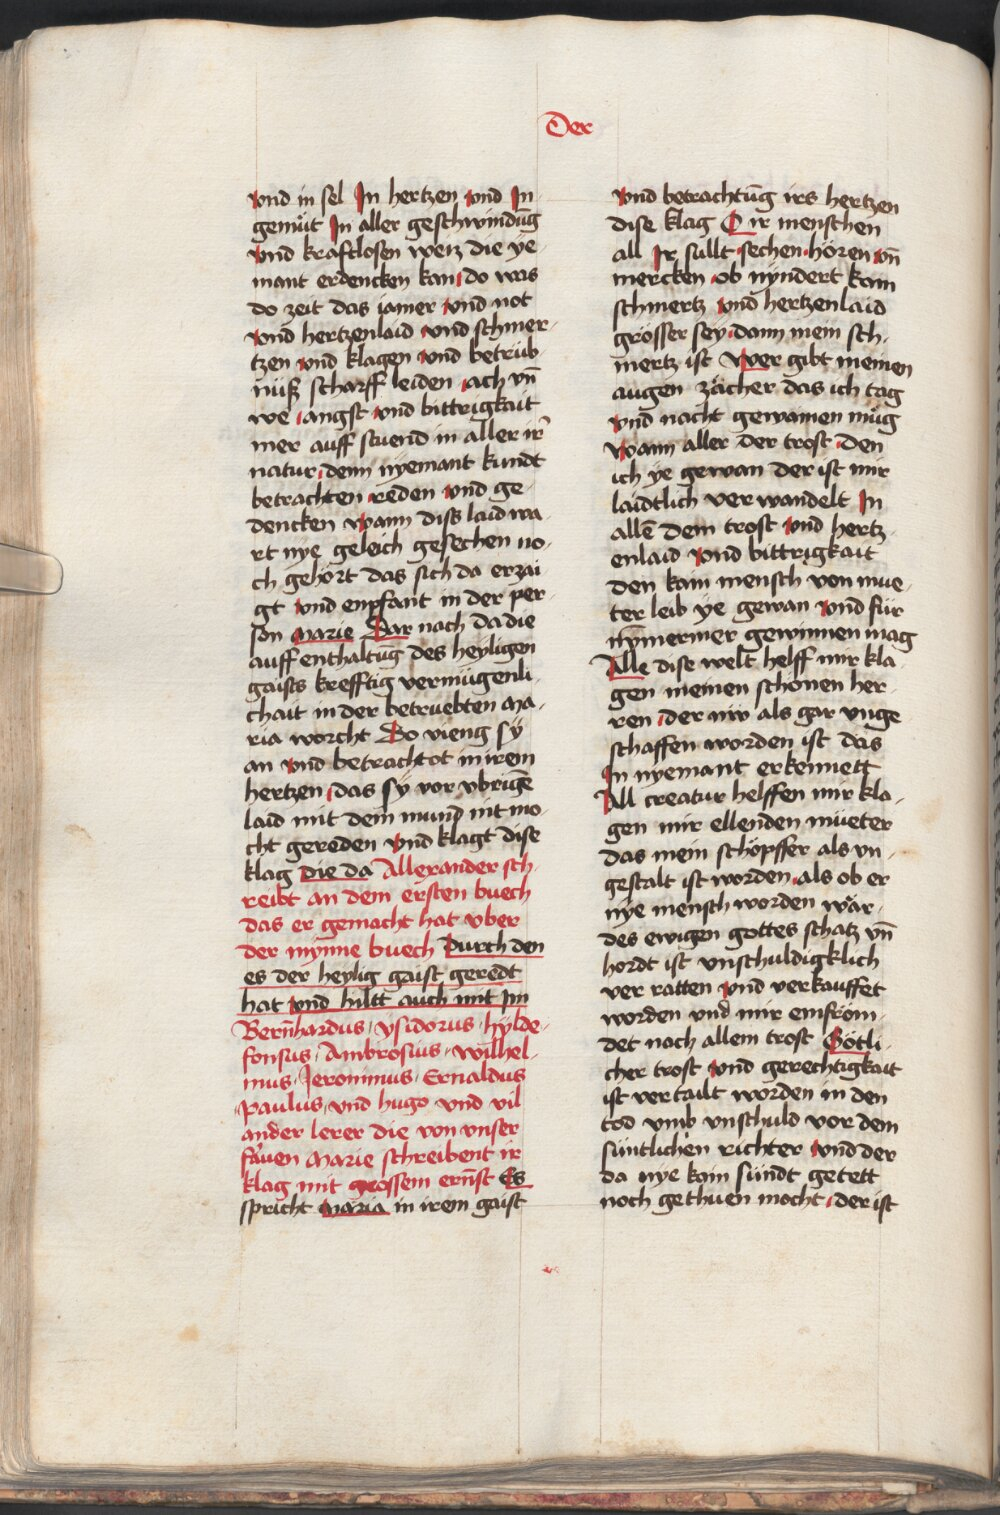 Der
vnd in sel In hertzen vnd In
gemüt In aller geschwindūg
vnd kraftlosen weiz die ye-
mant erdencken kan do was
do zeit das iamer vnd not
vnd hertzenlaid vnd schmer-
tzen vnd klagen vnd betrüb
nüß scharff leiden ach vn̄
we angst vnd bittrigkait
mer auff stuend in aller ir
natur denn nyemant kundt
betrachten reden vnd ge-
dencken wann diss laid wa-
rt nye geleich gesechen no-
ch gehört das sich da erzai-
gt vnd enpfant in der per-
son marie Dar nach da die
auff enthaltūg des heyligen
gaists krefftig vermügenli-
chait in der betruebten ma-
ria worcht Do vieng sÿ
an vnd betrachtot in irem
hertzen das sÿ vor vbrigē
laid mit dem mund nit mo-
cht gereden vnd klagt dise
klag die da Allexander sch-
reibt an dem ersten buech
das er gemacht hat vber
der mynne buech Durch den
es der heylig gaist geredt
hat vnd hiltt auch mit im
Bern̄hardus ysidorus hylde-
fonsus Ambrosius wilhel-
mus Jeronimus Ernaldus
paulus vnd hugo vnd vil
ander lerer die von vnser
fawen marie schreibent ir
klag mit grossem ernst Es
spricht maria in irem gaist
vnd betrachtūg irs hertzen
dise klag O ir menschen
all Ir sullt sechen hören vn̄
mercken ob nyndert kain
schmertz vnd hertzenlaid
grösser sey dann mein sch-
mertz ist wer gibt meinen
augen zächer das ich tag
vnd nacht gewainen müg
wann aller der trost den
ich ye gewan der ist mir
laidtlich verwandelt In
allē dem trost vnd hertz-
enlaid vnd bittrigkait
den kain mensch von mue-
ter leib ye gewan vnd für
nymermer gewinnen mag
Alle dise welt helff mir kla-
gen meinen schönen her-
ren der nw als gar vnge-
schaffen worden ist das
In nyemant erkennett
All creatur helffen mir kla-
gen mir ellenden müeter
das mein schöpffer als vn-
gestalt ist worden als ob er
nye mensch worden wär
des ewigen gottes schatz vn̄
hordt ist vnschuldigklich
ver ratten vnd verkauffet
worden vnd mir emfröm-
det nach allem trost Götli-
cher trost vnd gerechtigkait
ist vertailt worden in den
tod vmb vnschuld vor dem
süntlichen richter vnd der
da nye kain sündt getett
noch gethuen mocht der ist